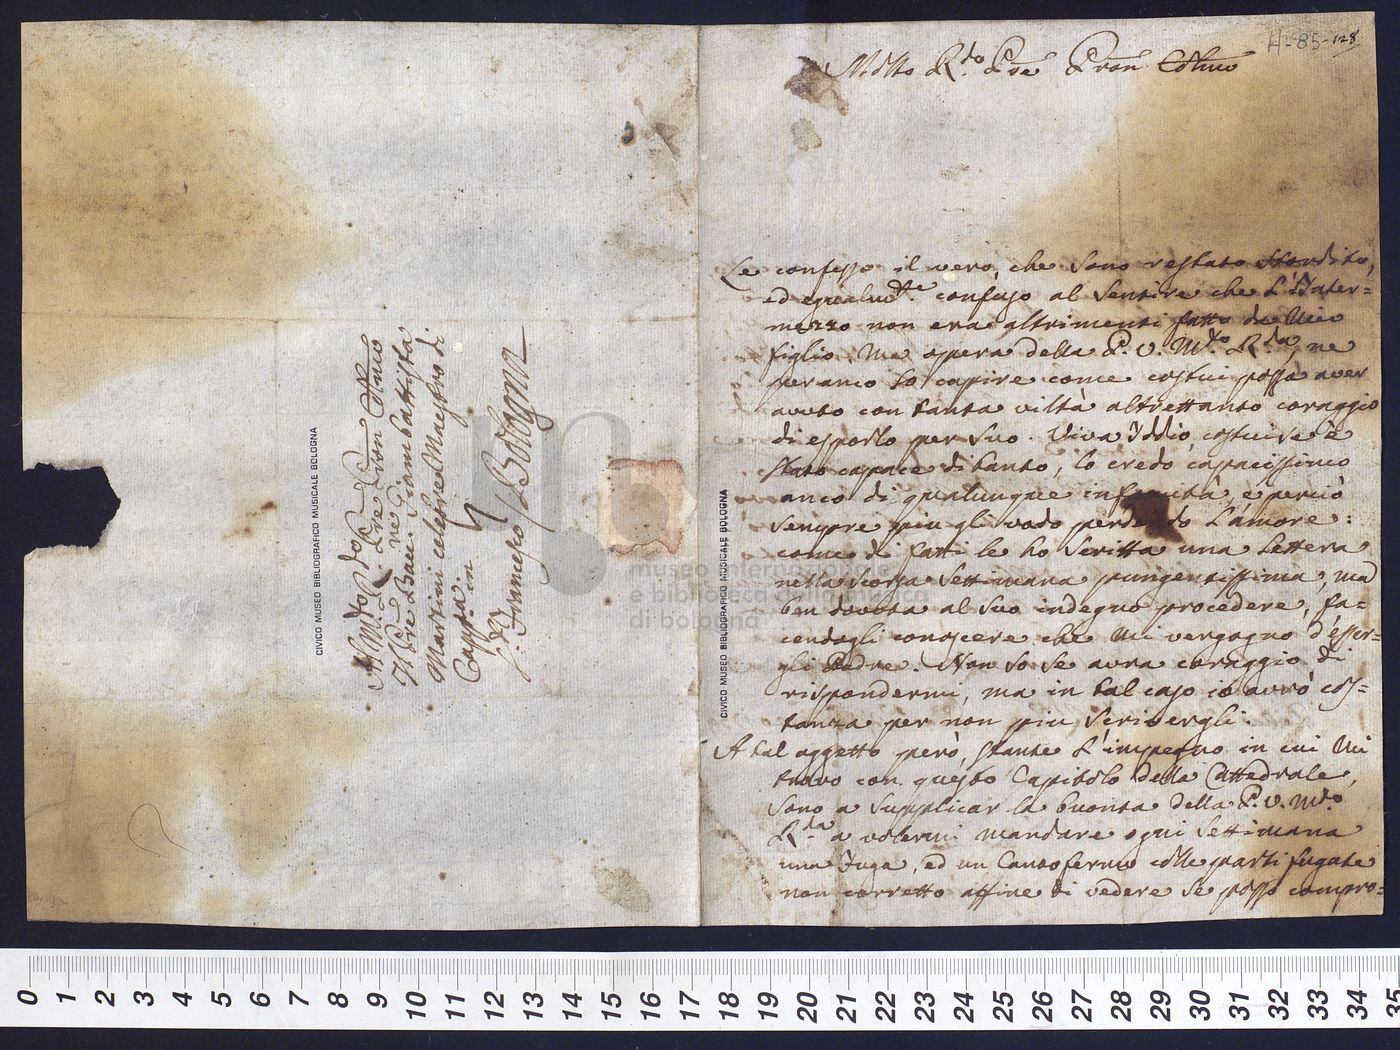 H-85-128
Molto R.do Pre Pron Colmo
Le confesso il vero, che sono restato stordito,
ed egualm.te confuso al sentire che l'Inter=
mezzo non era altrimenti fatto da Mio
figlio, ma opera della P. V. M.to R.da, ne
per anco so capire come costui possa aver
avuto con tanta viltà altrettanto coraggio
di esporlo per suo. Viva Iddio, costui se è
stato capace di tanto, lo credo capacissimo
anco di qualunque infamità, e perciò
sempre piu gli vado perdendo l'amore:
come di fatti le ho scritta una lettera
nella scorsa settimana pungentissima, ma
ben dovuta al suo indegno procedere, fa=
cendogli conoscere che mi vergogno d'esser=
gli Padre. Non so se avra coraggio di
rispondermi, ma in tal caso io avrò cos=
tanza per non piu scrivergli.
A tal oggetto però, stante l'impegno in cui mi
trovo con questo Capitolo della Cattedrale,
sono a supplicar la buonta della P. V. M.to
R.da a volermi mandare ogni settimana
una fuga, ed un Canto fermo colle parti fugate
non corretto affine di vedere se posso compro=
Al M.to R.do Pre Pron Colmo
Il Pre Bacc.re Giambattista
Martini celebre Maestro di
Capp.a in
S. Francesco / Bologna
CIVICO MUSEO BIBLIOGRAFICO MUSICALE BOLOGNA
CIVICO MUSEO BIBLIOGRAFICO MUSICALE BOLOGNA
museo internazionale
e biblioteca della musica
di bologna
0 1 2 3 4 5 6 7 8 9 10 11 12 13 14 15 16 17 18 19 20 21 22 23 24 25 26 27 28 29 30 31 32 33 34 35